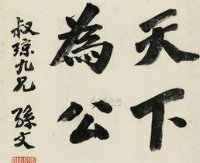 天下
為公
叔琼九兄
孫文